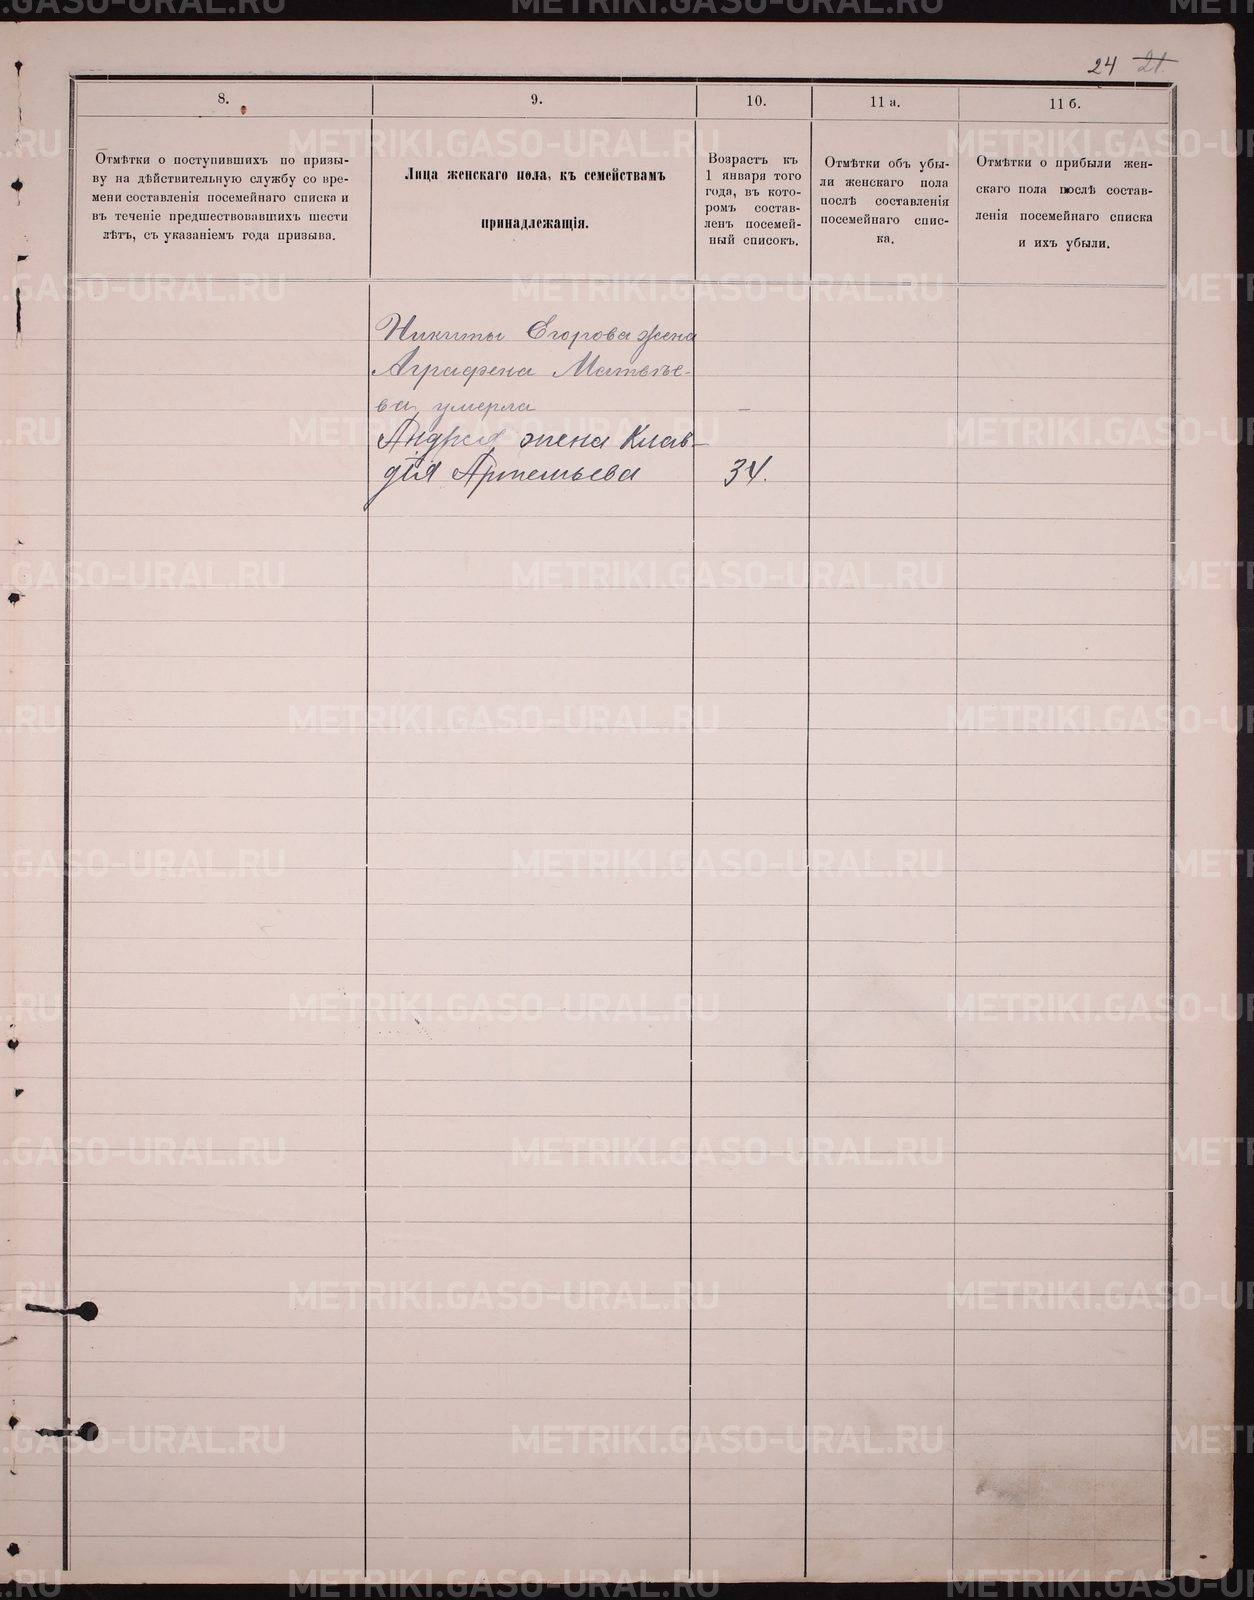 24 21.
8. 9. 10. 11 а. 11 б.
Отмѣтки о поступившихъ по призы-
ву на дѣйствительную службу со вре-
мени составленія посемейнаго списка и
въ теченіе предшествовавшихъ шести
лѣтъ, съ указаніемъ года призыва.
Лица женскаго пола, къ семействамъ
принадлежащія.
Возрастъ къ
1 января того
года, въ кото-
ромъ состав-
ленъ посемей-
ный списокъ.
Отмѣтки объ убы-
ли женскаго пола
послѣ составленія
посемейнаго спис-
ка.
Отмѣтки о прибыли жен-
скаго пола послѣ состав-
ленія посемейнаго списка
и ихъ убыли.
Никиты Егорова жена
Аграфена Матвѣе-
ва, умерла –
Андрея жена Клав-
дія Артемьева 34.
METRIKI.GASO-URAL.RU